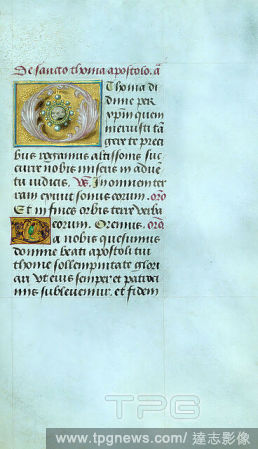 De sancto thoma apostolo. ã
O Thoma di
dime per
xp̄m quem
meruisti tã
gere te preci
bus rogamus altissonis suc
curre nobis miseris in aduē
tu iudicis. V̄s. In omnem ter
ram exiuit sonus eorum. orō
Et in fines orbis terre verba
eorum. Oremus. orō
Da nobis quesumus
domine beati apostoli tui
thome sollempnitate glori
ari vt eius semper et patroci
niis subleuemur. et fidem
TPG
www.tpgnews.com/ 達志影像